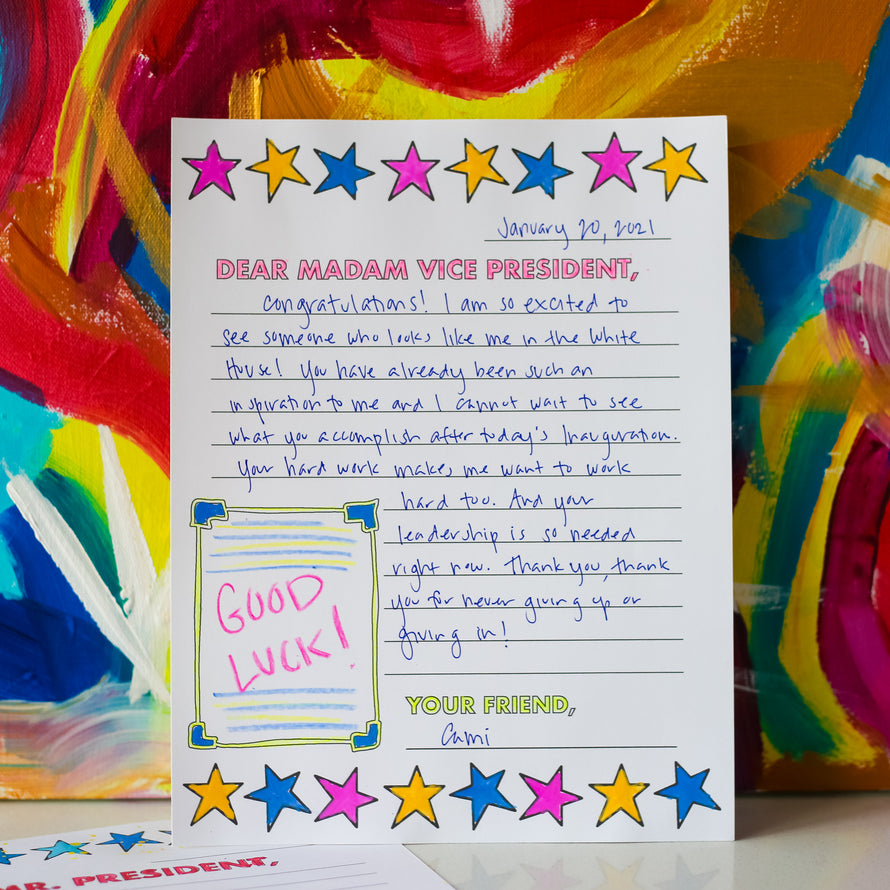 January 20, 2021
DEAR MADAM VICE PRESIDENT,
Congratulations! I am so excited to
see someone who looks like me in the White
House! You have already been such an
inspiration to me and I cannot wait to see
what you accomplish after today's Inauguration.
Your hard work makes me want to work
hard too. And your
leadership is so needed
right now. Thank you, thank
you for never giving up or
giving in!
GOOD
LUCK!
YOUR FRIEND,
Cami
MR. PRESIDENT,